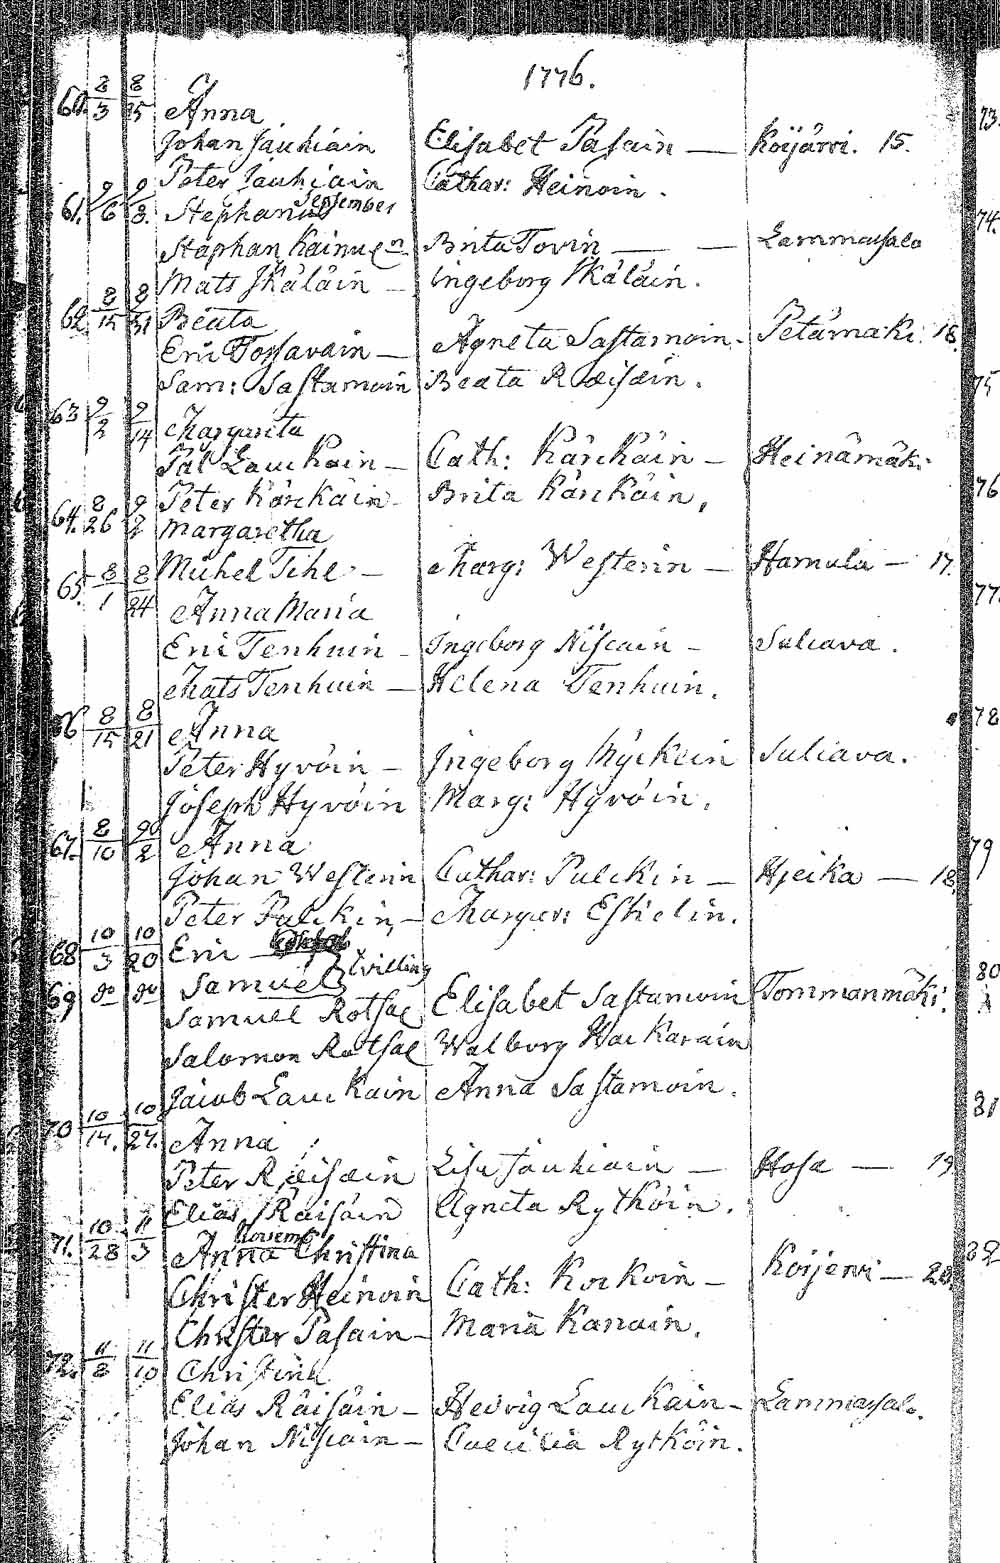 1776.
60. 8/3 8/25 Anna
Johan Jauhiain Elisabet Pasain — Koijärvi. 15.
Peter Jauhiain Cathar: Heinoin.
September
61. 9/6 9/8. Stephanus
Staphan Kainul Brita Tovin — — Lammassalo
Mats Räläin — Ingeborg Räläin.
62 8/15 8/31 Beata
Eric Tossavain — Agneta Sastamoin. Petämäki. 16.
Sam: Sastamoin Beata Ræisæin.
63 9/2 9/14 Margareta
Pål Lauckain — Cath: Kärckäin — Heinämäki
Peter Kärckäin — Brita Kärckäin,
64. 8/26 9/2 Margaretha
Michel Tihl — Marg: Westerin — Hamula — 17.
65. 8/1 8/24 Anna Maria
Eric Tenhuin — Ingeborg Niscain — Suliava.
Mats Tenhuin — Helena Tenhuin.
66 8/15 8/21 Anna
Peter Hyvöin — Ingeborg Myckein Suliava.
Joseph Hyvöin Marg: Hyvöin.
67. 8/10 9/2 Anna
Johan Westerin Cathar: Pulckin — 18.
Peter Pulckin, — Margar: Eskelin.
68 10/3 10/20 Eric
69 do do Samuel tvilling
Samuel Rotsal Elisabet Sastamoin Tommanmäki.
Salomon Rotsal Walborg Hackarain
Jacob Lauckain Anna Sastamoin.
70 10/14. 10/27. Anna
Peter Ræisæin Lisa Jauhiain — Hosa — 19
Elias Räisäin Agneta Rytköin.
Novemb
71. 10/28 11/3 Anna Christina
Christer Heinoin Cath: Kockoin — Koijervi — 20.
Christer Pasain — Maria Kanain.
72. 11/8 11/10 Christina
Elias Räisäin — Hedvig Lauckain — Lammassalo.
Johan Niscain — Caecilia Rytköin.
73.
74.
75
76
77.
78
79
80
81
82